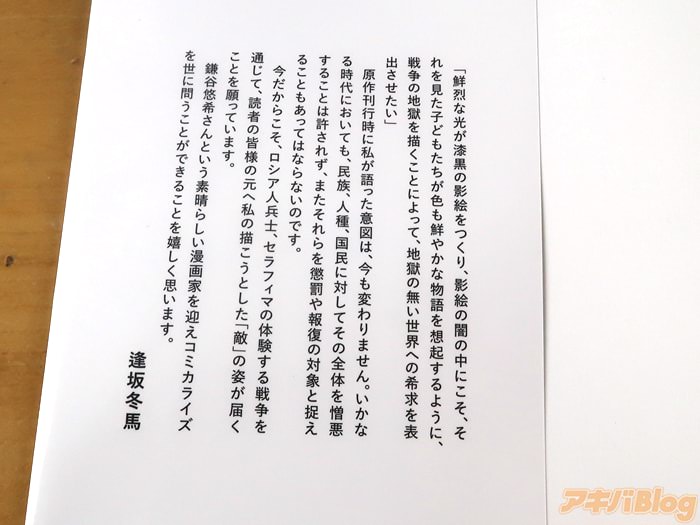 「鮮烈な光が漆黒の影絵をつくり、影絵の闇の中にこそ、そ
れを見た子どもたちが色も鮮やかな物語を想起するように、
戦争の地獄を描くことによって、地獄の無い世界への希求を表
出させたい」
原作刊行時に私が語った意図は、今も変わりません。いかな
る時代においても、民族、人種、国民に対してその全体を憎悪
することは許されず、またそれらを懲罰や報復の対象と捉え
ることもあってはならないのです。
今だからこそ、ロシア人兵士、セラフィマの体験する戦争を
通じて、読者の皆様の元へ私の描こうとした「敵」の姿が届く
ことを願っています。
鎌谷悠希さんという素晴らしい漫画家を迎えコミカライズ
を世に問うことができることを嬉しく思います。
逢坂冬馬
アキバBlog